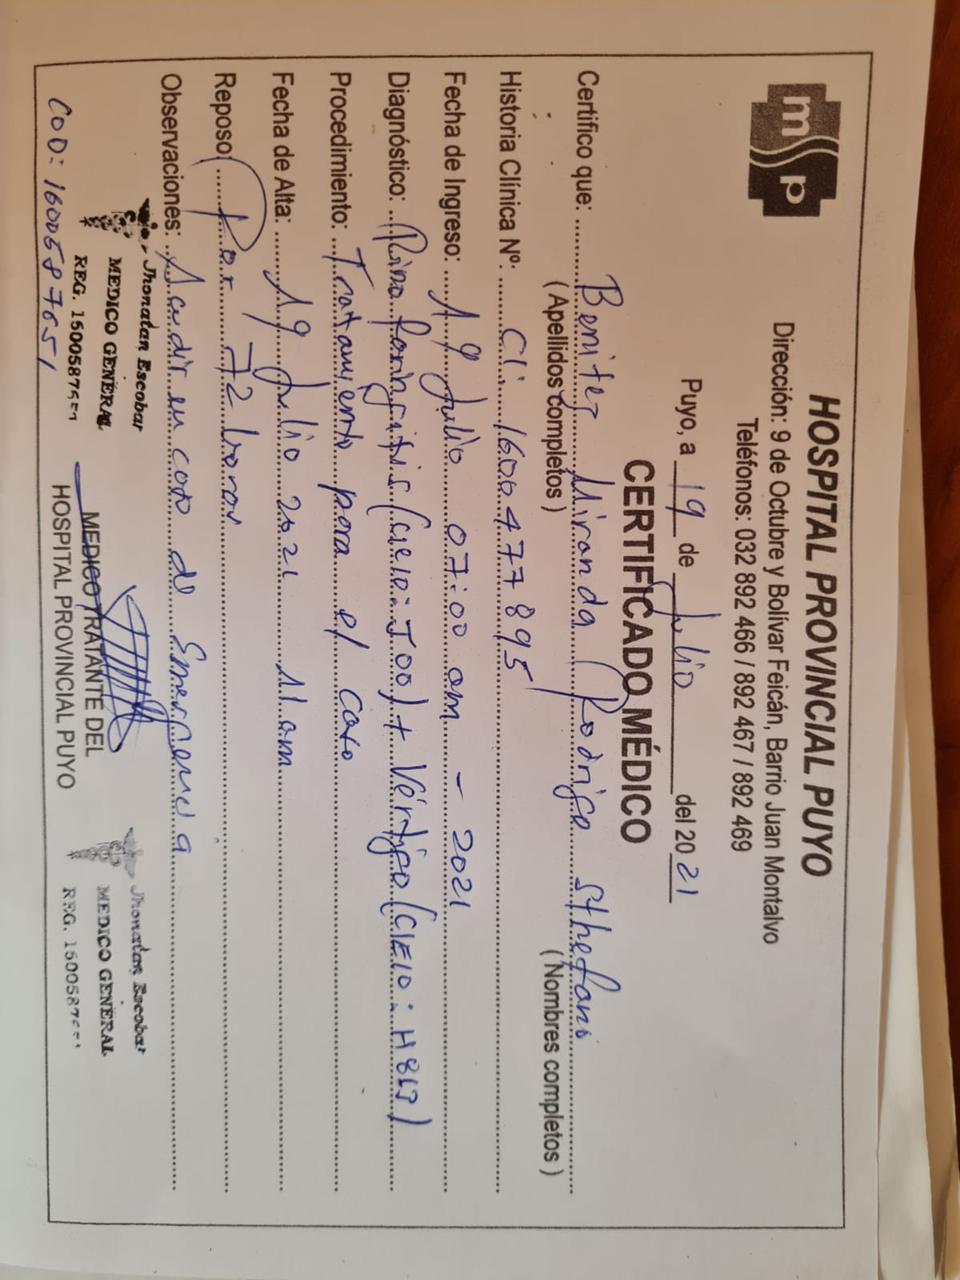 msp
HOSPITAL PROVINCIAL PUYO
Dirección: 9 de Octubre y Bolívar Feicán, Barrio Juan Montalvo
Teléfonos: 032 892 466 / 892 467 / 892 469
Puyo, a 19 de Julio del 2021
CERTIFICADO MÉDICO
Certifico que: Benitez Miranda Rodrigo Sthefano
( Apellidos completos ) ( Nombres completos )
Historia Clínica Nº: CI: 1600477895
Fecha de Ingreso: 19 Julio 07:00 am - 2021
Diagnóstico: Rino faringitis (CIE10: J00) + Vértigo (CIE10:
Procedimiento: Tratamiento para el caso
Fecha de Alta: 19 Julio 2021 11am
Reposo: Por 72 horas
Observaciones: Acudir en caso de Emergencia
Jhonatan Escobar
MEDICO GENERAL
REG. 1500587651
MEDICO TRATANTE DEL
HOSPITAL PROVINCIAL PUYO
Jhonatan Escobar
MEDICO GENERAL
REG.
COD: 1600587651